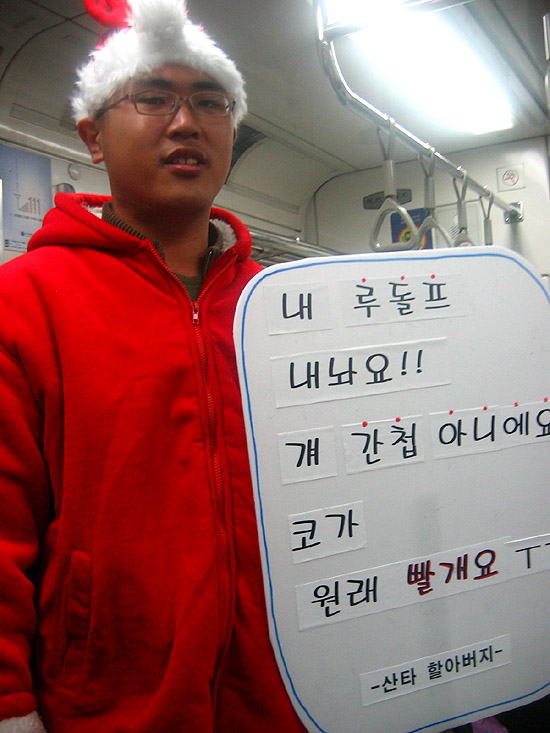 111
내 루돌프
내놔요!!
걔 간첩 아니에요
코가
원래 빨개요 ㅜㅜ
-산타 할아버지-